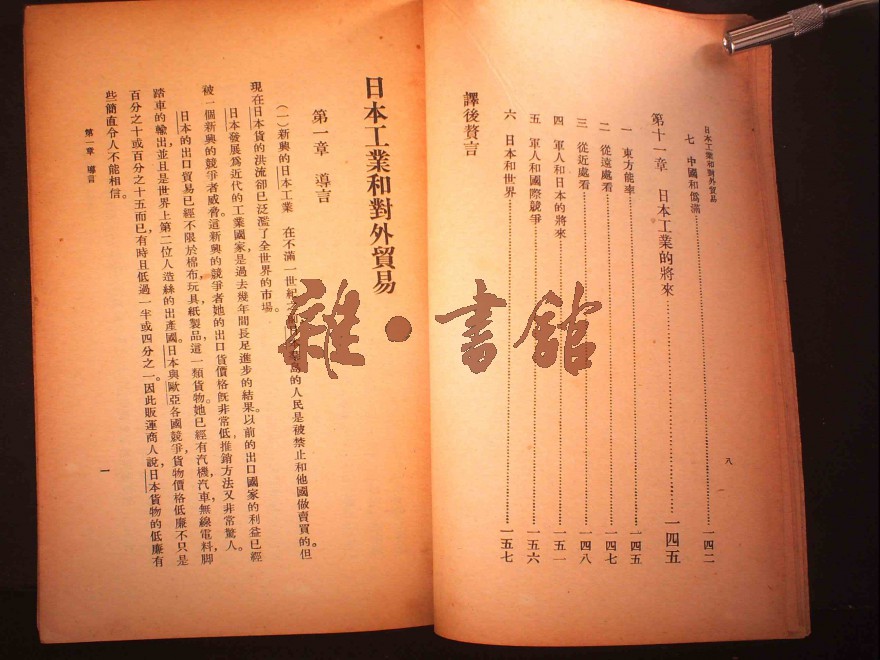 日本工業和對外貿易
七 中國和僞滿……一四二
第十一章 日本工業的將來……一四五
一 東方能率……一四五
二 從遠處看……一四七
三 從近處看……一四八
四 軍人和日本的將來……一五一
五 軍人和國際競爭……一五六
六 日本和世界……一五七
譯後贅言
八
日本工業和對外貿易
第一章 導言
(一)新興的日本工業 在不滿一世紀之前日本島的人民是被禁止和他國做賣買的。但
現在日本貨的洪流卻已泛濫了全世界的市場。
日本發展爲近代的工業國家,是過去幾年間長足進步的結果。以前的出口國家的利益已經
被一個新興的競爭者威脅。這新興的競爭者她的出口貨價格旣非常低,推銷方法又非常驚人。
日本的出口貿易已經不限於棉布,玩具,紙製品,這一類貨物。她已經有汽機汽車,無線電料,脚
踏車的輸出,並且是世界上第二位人造絲的出產國。日本與歐亞各國競爭,貨物價格低廉不只是
百分之十或百分之十五而已,有時且低過一半或四分之一。因此販運商人說,日本貨物的低廉有
些簡直令人不能相信。
第一章 導言
一
雜·書館